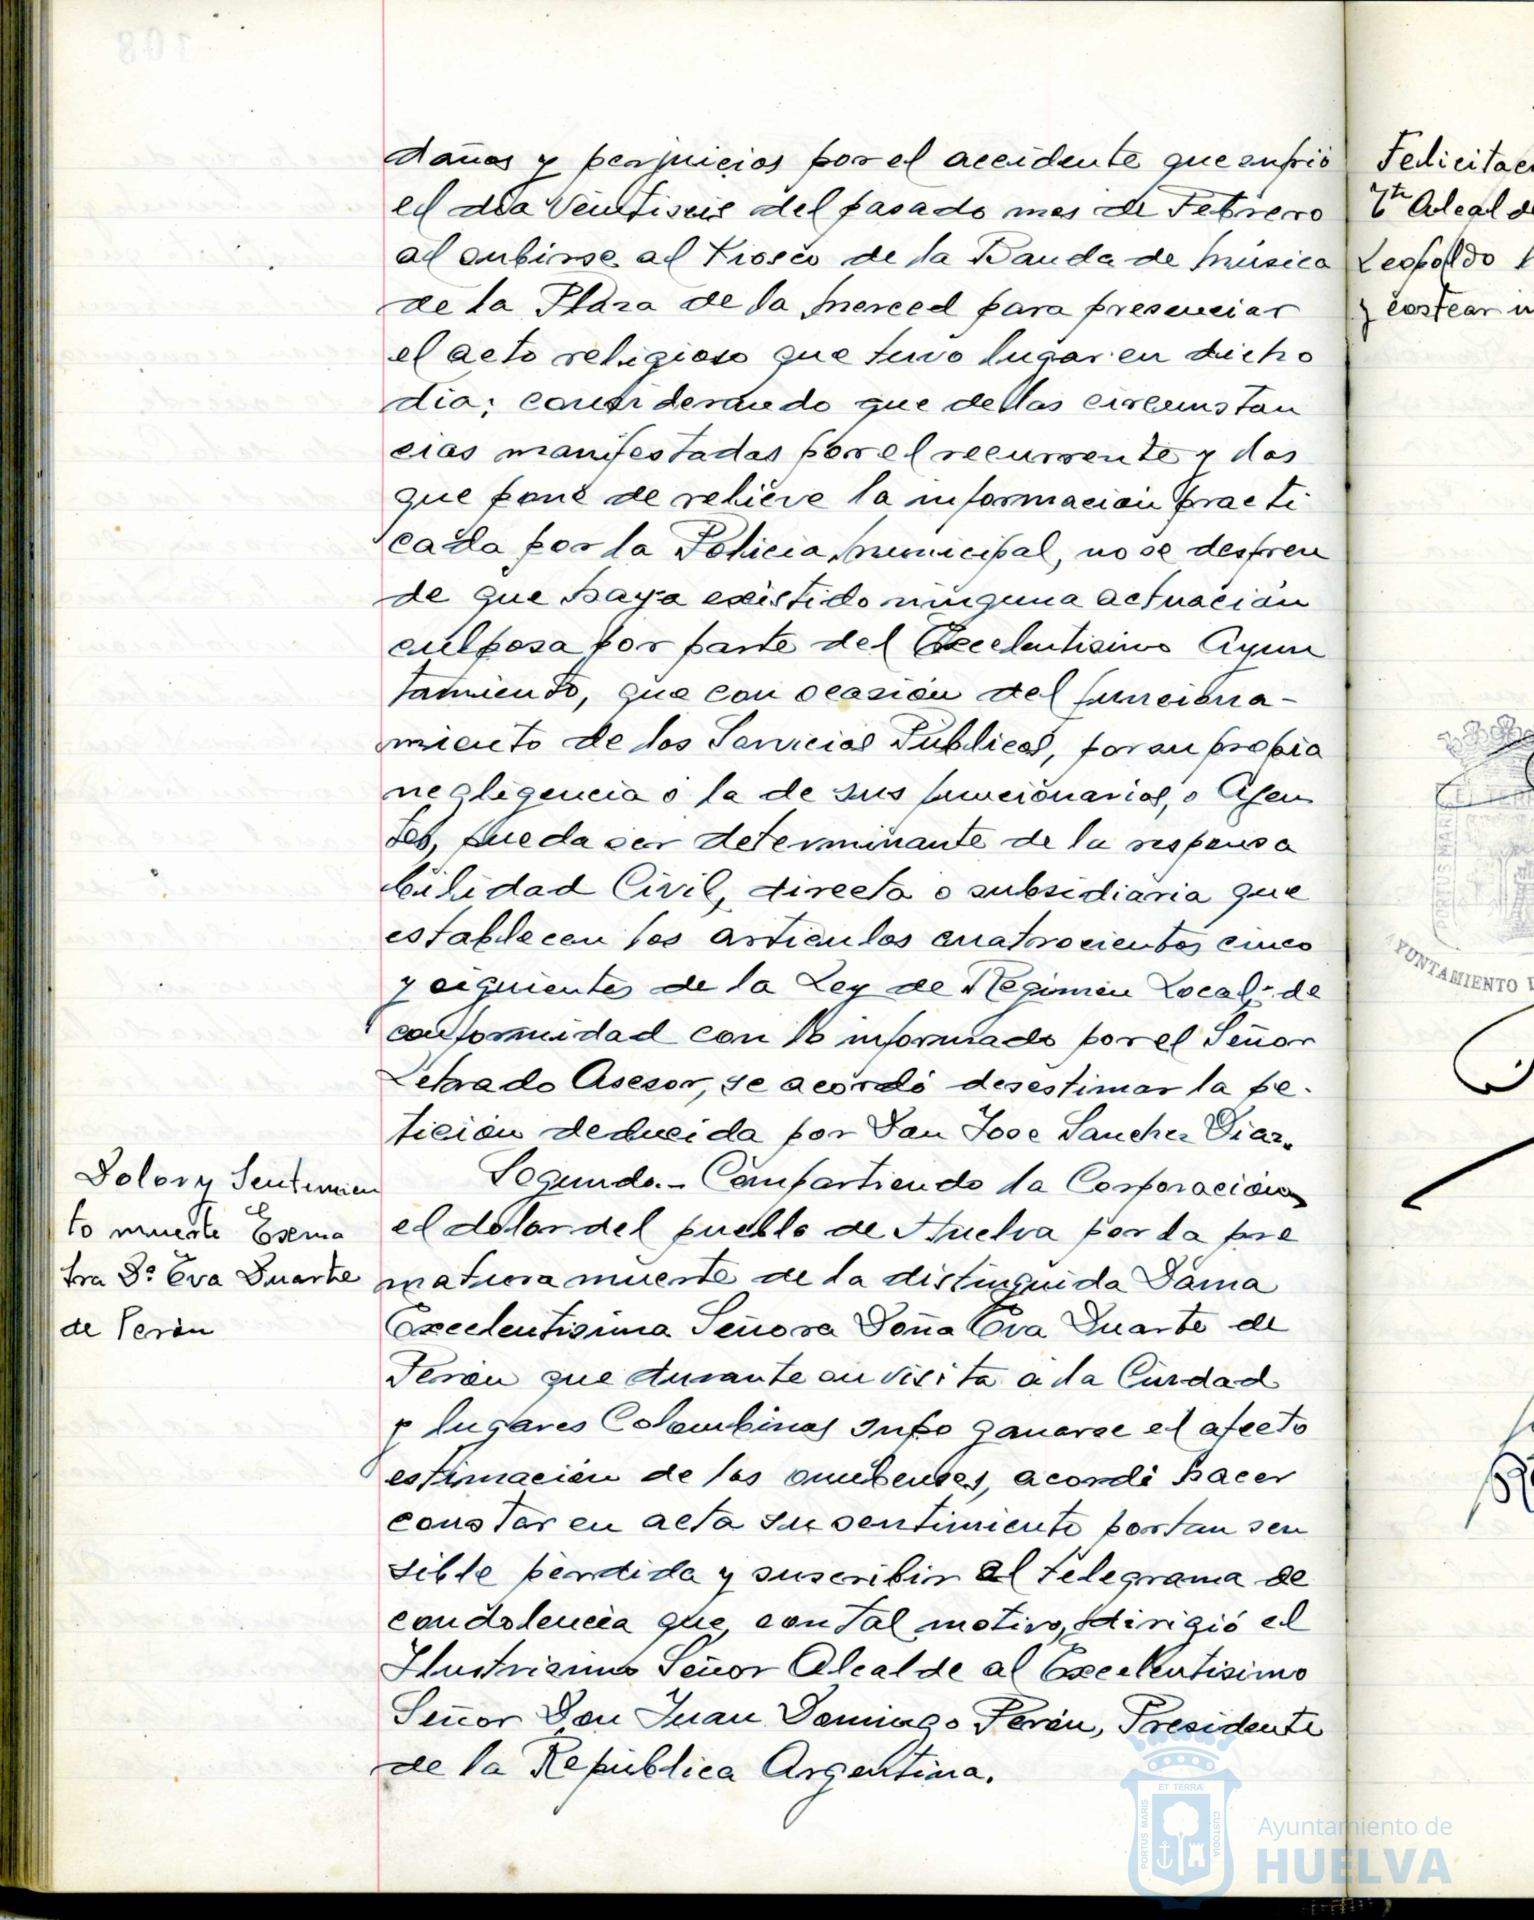 daños y perjuicios por el accidente que sufrió
el dia veintiseis del pasado mes de Febrero
al subirse al Kiosco de la Banda de música
de la Plaza de la Merced para presenciar
el acto religioso que tuvo lugar en dicho
dia; considerando que de las circunstan
cias manifestadas por el recurrente y las
que pone de relieve la información practi
cada por la Policia municipal, no se despren
de que haya existido ninguna actuación
culposa por parte del Excelentisimo Ayun
tamiento, que con ocasión del funciona-
miento de los Servicios Públicos, por su propia
negligencia o la de sus funcionarios, o Agen
tes, pueda ser determinante de la responsa
bilidad Civil, directa o subsidiaria que
establecen los articulos cuatrocientos cinco
y siguientes de la Ley de Régimen Local; de
conformidad con lo informado por el Señor
Letrado Asesor, se acordó desestimar la pe-
tición deducida por Don Jose Sanchez Diaz.
Dolor y Sentimien
to muerte Excma
tra Dª Eva Duarte
de Perón
Segundo.- Compartiendo la Corporación
el dolor del pueblo de Huelva por la pre
matura muerte de la distinguida Dama
Excelentisima Señora Doña Eva Duarte de
Perón que durante su visita a la Ciudad
y lugares Colombinos supo ganarse el afecto
estimación de los onubenses, acordó hacer
constar en acta su sentimiento por tan sen
sible pérdida y suscribir el telegrama de
condolencia que, con tal motivo, dirigió el
Ilustrisimo Señor Alcalde al Excelentisimo
Señor Don Juan Domingo Perón, Presidente
de la República Argentina.
108
Felicitac
Tte Alcalde
Leopoldo
y costear
PORTUS MARIS
ET TERRÆ
CUSTODIA
AYUNTAMIENTO
Ayuntamiento de
HUELVA